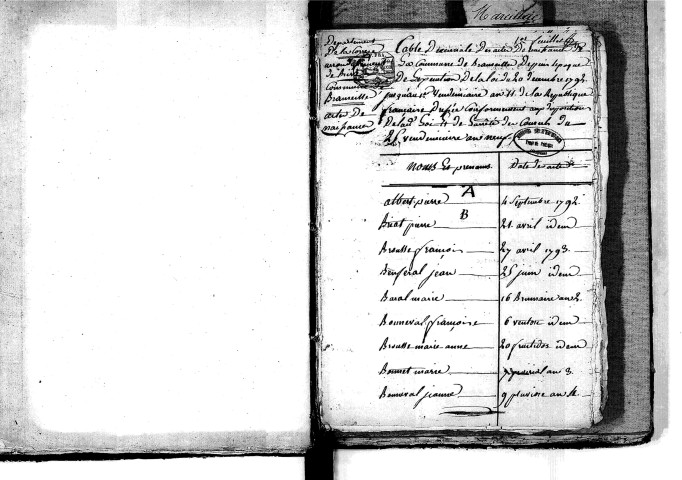 Marcillac
1er feuillet
Departement
De la Correze
arrondissement
de Brive
Commune de
Branceille
actes De
naissance
Table Decennale Des actes de naissance de
La Commune de Branceille Depuis lepoque
de Lexecution De la loi du 20 decembre 1792
jusqu'au 1er Vendemiaire an 11 de la Republique
francaise Dressée Conformement aux dispositions
De la Loi et de l'arreté des Consuls du
25 vendemiaire an neuf
noms Et prenoms Date des actes
A
albert pierre 4 Septembre 1792
B
Breat pierre 21 avril idem
Brousse françois 27 avril 1793
Bonneval jean 25 juin idem
Baral marie 16 Brumaire an 2
Bonneval françoise 6 ventose idem
Brousse marie anne 20 fructidor idem
Bonnet marie prairial an 3
Bonneval jeanne 9 pluviose an 4